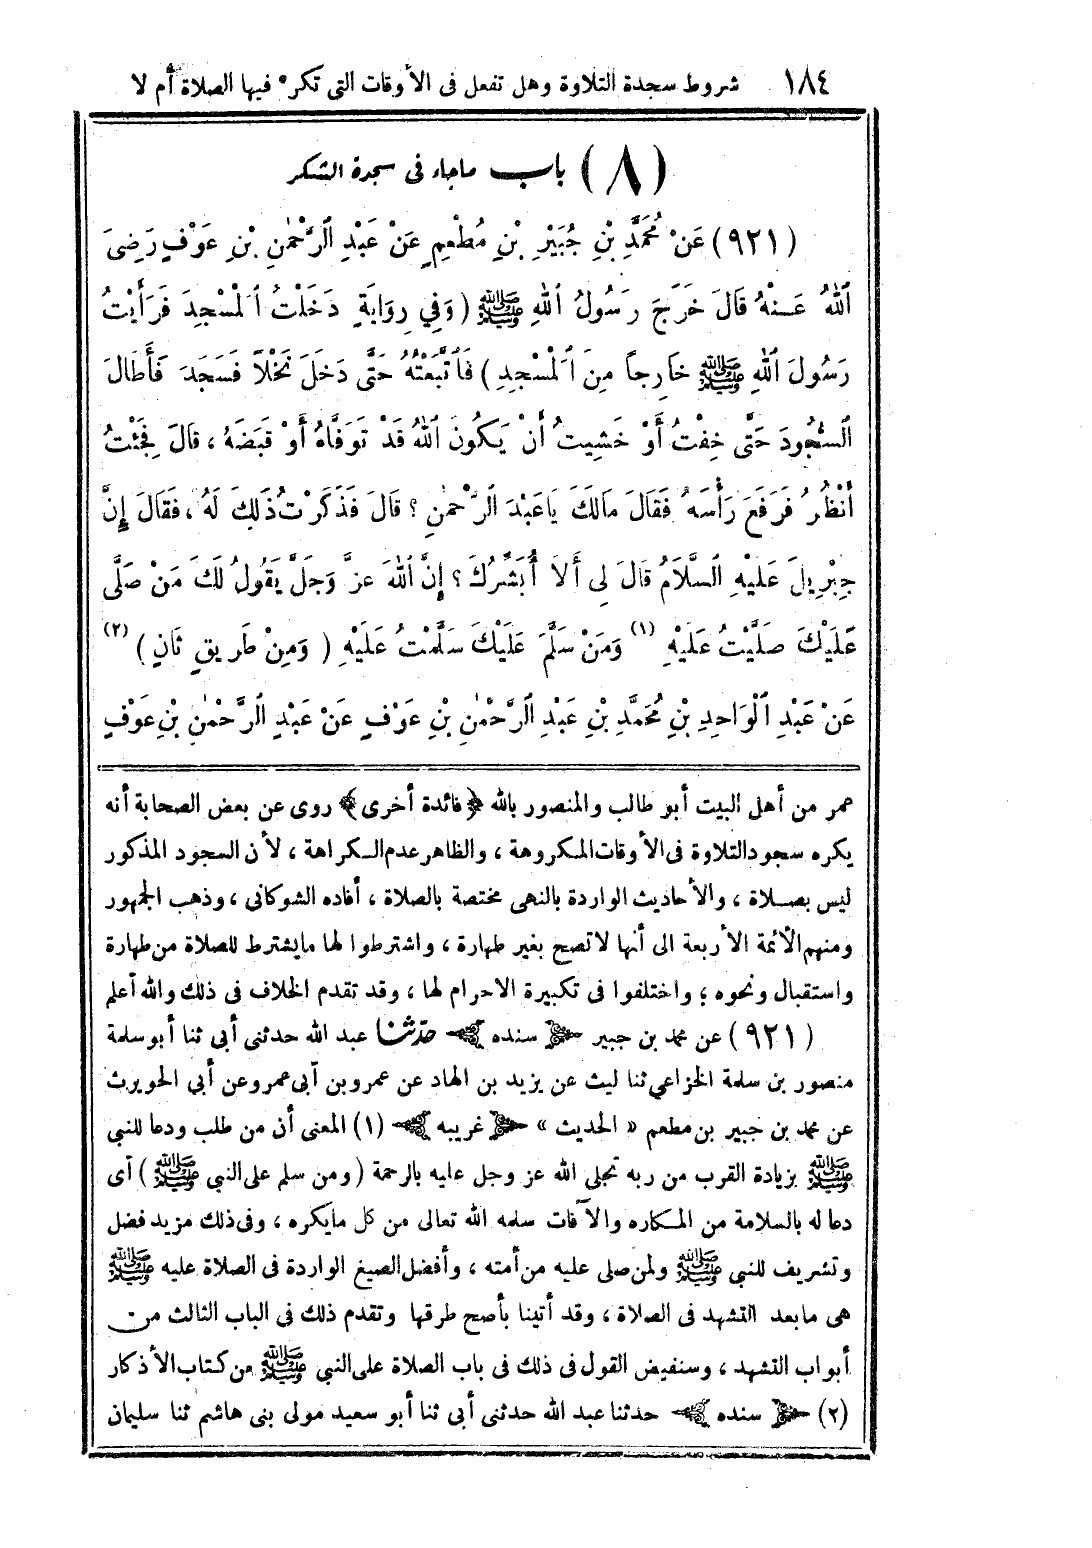 ١٨٤ شروط سجدة التلاوة وهل تفعل فى الأوقات التى تكره فيها الصلاة أم لا
(٨) باب ماجاء فى سجدة الشكر
(٩٢١) عَنْ مُحَمَّدِ بْنِ جُبَيْرِ بْنِ مُطْعِمٍ عَنْ عَبْدِ ٱلرَّحْمٰنِ بْنِ عَوْفٍ رَضِىَ
ٱللهُ عَنْهُ قَالَ خَرَجَ رَسُولُ ٱللهِ ﷺ (وَفِي رِوَايَةٍ دَخَلْتُ ٱلْمَسْجِدَ فَرَأَيْتُ
رَسُولَ ٱللهِ ﷺ خَارِجاً مِنَ ٱلْمَسْجِدِ) فَٱتَّبَعْتُهُ حَتَّى دَخَلَ نَخْلاً فَسَجَدَ فَأَطَالَ
ٱلسُّجُودَ حَتَّى خِفْتُ أَوْ خَشِيتُ أَنْ يَكُونَ ٱللهُ قَدْ تَوَفَّاهُ أَوْ قَبَضَهُ ، قَالَ فَجِئْتُ
أَنْظُرُ فَرَفَعَ رَأْسَهُ فَقَالَ مَالَكَ يَاعَبْدَ ٱلرَّحْمٰنِ ؟ قَالَ فَذَكَرْتُ ذَلِكَ لَهُ ، فَقَالَ إِنَّ
جِبْرِيلَ عَلَيْهِ ٱلسَّلَامُ قَالَ لِى أَلاَ أُبَشِّرُكَ ؟ إِنَّ ٱللهَ عزَّ وَجَلَّ يَقُولُ لَكَ مَنْ صَلَّى
عَلَيْكَ صَلَّيْتُ عَلَيْهِ (١) وَمَنْ سَلَّمَ عَلَيْكَ سَلَّمْتُ عَلَيْهِ (وَمِنْ طَرِيقٍ ثَانٍ) (٢)
عَنْ عَبْدِ ٱلْوَاحِدِ بْنِ مُحَمَّدِ بْنِ عَبْدِ ٱلرَّحْمٰنِ بْنِ عَوْفٍ عَنْ عَبْدِ ٱلرَّحْمٰنِ بْنِ عَوْفٍ
عمر من أهل البيت أبو طالب والمنصور بالله ﴿فائدة أخرى﴾ روى عن بعض الصحابة أنه
يكره سجودالتلاوة فى الأوقات المكروهة ، والظاهر عدم الكراهة ، لأن السجود المذكور
ليس بصلاة ، والأحاديث الواردة بالنهى مختصة بالصلاة ، أفاده الشوكانى ، وذهب الجمهور
ومنهم الأئمة الأربعة الى أنها لاتصح بغير طهارة ، واشترطوا لها مايشترط للصلاة من طهارة
واستقبال ونحوه ؛ واختلفوا فى تكبيرة الاحرام لها ، وقد تقدم الخلاف فى ذلك والله أعلم
(٩٢١) عن محمد بن جبير ﴿سنده﴾ حدّثنا عبد الله حدثنى أبى ثنا أبو سلمة
منصور بن سلمة الخزاعي ثنا ليث عن يزيد بن الهاد عن عمرو بن أبى عمرو عن أبي الحويرث
عن محمد بن جبير بن مطعم « الحديث » ﴿غريبه﴾ (١) المعنى أن من طلب ودعا للنبي
ﷺ بزيادة القرب من ربه تجلى الله عز وجل عليه بالرحمة (ومن سلم على النبي ﷺ) أى
دعا له بالسلامة من المكاره والآفات سلمه الله تعالى من كل مايكره ، وفى ذلك مزيد فضل
وتشريف للنبي ﷺ ولمن صلى عليه من أمته ، وأفضل الصيغ الواردة فى الصلاة عليه ﷺ
هى مابعد التشهد فى الصلاة ، وقد أتينا بأصح طرقها وتقدم ذلك فى الباب الثالث من
أبواب التشهد ، وسنفيض القول فى ذلك فى باب الصلاة على النبي ﷺ من كتاب الأذكار
(٢) ﴿سنده﴾ حدثنا عبد الله حدثنى أبى ثنا أبو سعيد مولى بنى هاشم ثنا سليمان